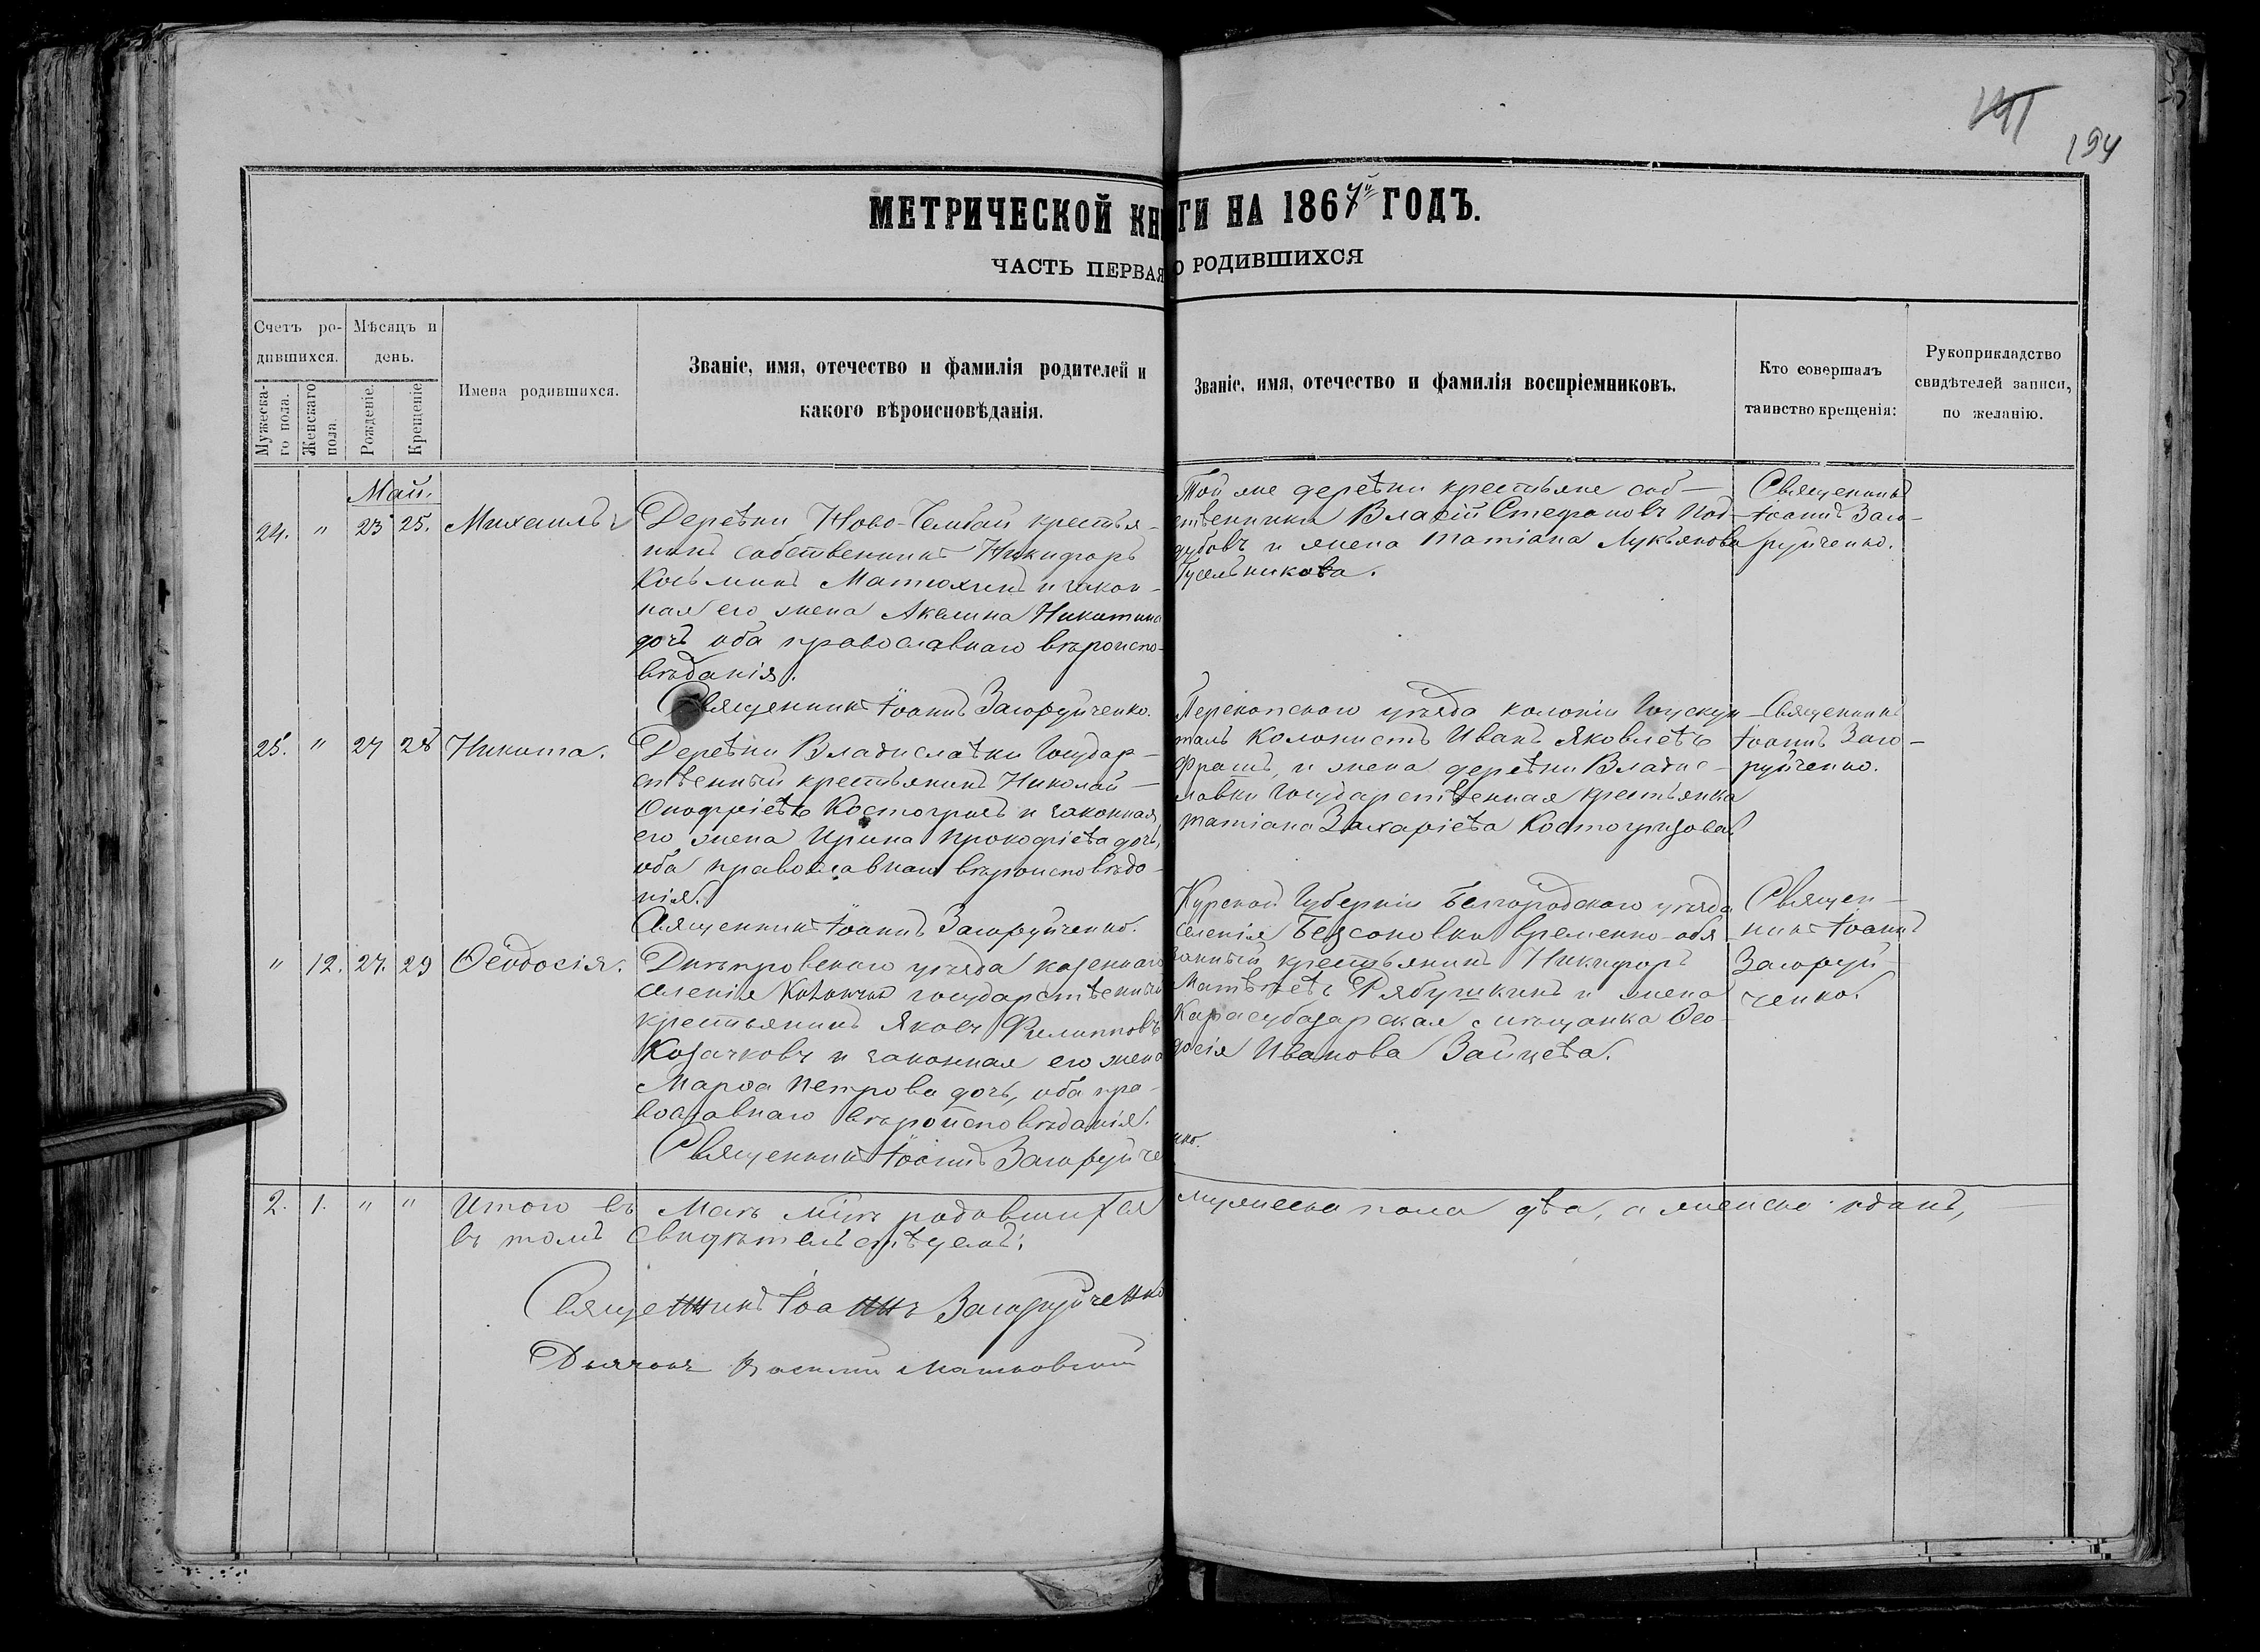 194
МЕТРИЧЕСКОЙ КНИГИ НА 1867й ГОДЪ.
ЧАСТЬ ПЕРВАЯ О РОДИВШИХСЯ
Счетъ ро-
дившихся.
Мѣсяцъ и
день.
Мужеска-
го пола.
Женскаго
пола.
Рожденіе.
Крещеніе.
Имена родившихся.
Званіе, имя, отечество и фамилія родителей и
какого вѣроисповѣданія.
Званіе, имя, отечество и фамилія воспріемниковъ.
Кто совершалъ
таинство крещенія:
Рукоприкладство
свидѣтелей записи,
по желанію.
Май.
24. " 23 25. Михаилъ
Деревни Ново- крестья-
нинъ собственникъ Никифоръ
Козьминъ Матюхинъ и закон-
ная его жена Акилина Никитина
дочь оба православнаго вѣроиспо-
вѣданія.
Священникъ Іоаннъ Загоруйченко.
Той же деревни крестьяне соб-
ственники Власій Стефановъ Под-
дубовъ и жена Татіана Лукьянова
Гусельникова.
Священникъ
Іоаннъ Заго-
руйченко.
25. " 27 28 Никита.
Деревни Владиславки Государ-
ственный крестьянинъ Николай
Онофріевъ Костогризъ и законная
его жена Ирина Прокофіева дочь,
оба православнаго вѣроисповѣда-
нія.
Священникъ Іоаннъ Загоруйченко.
Перекопскаго уѣзда колоніи
таль Колонистъ Иванъ Яковлевъ
и жена деревни Владис-
лавки Государственная крестьянка
Татіана Захаріева Костогризова
Священникъ
Іоаннъ Заго-
руйченко.
" 12. 27. 29 Ѳеодосія.
Днѣпровскаго уѣзда казеннаго
селенія государственный
крестьянинъ Яковъ Филипповъ
Козачковъ и законная его жена
Марѳа Петрова дочь, оба пра-
вославнаго вѣроисповѣданія.
Священникъ Іоаннъ Загоруйченко.
Курской Губерніи Белгородскаго уѣзда
селенія Безсоновки временно-обя-
занный крестьянинъ Никифоръ
Матвѣевъ Рябушкинъ и жена
Карасубазарская мѣщанка Ѳео-
досія Иванова Зайцева.
Священ-
никъ Іоаннъ
Загоруй-
ченко.
2. 1. " " Итого въ Маѣ мцѣ родившихся мужеска пола два, а женска одинъ,
въ томъ свидѣтельствуемъ:
Священникъ Іоаннъ Загоруйченко
Дьячокъ Василій